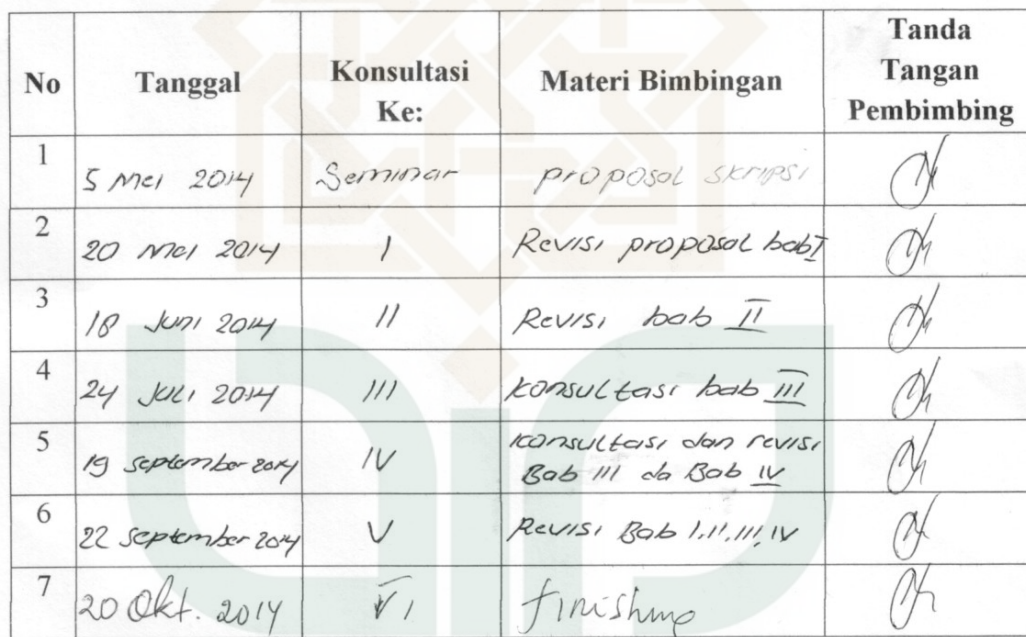 No Tanggal Konsultasi Ke: Materi Bimbingan Tanda Tangan Pembimbing
1 5 Mei 2014 Seminar proposal skripsi
2 20 Mei 2014 I Revisi proposal bab I
3 18 Juni 2014 II Revisi bab II
4 24 Juli 2014 III konsultasi bab III
5 19 september 2014 IV konsultasi dan revisi
Bab III da Bab IV
6 22 september 2014 V Revisi Bab I.II.III.IV
7 20 Okt. 2014 VI finishing